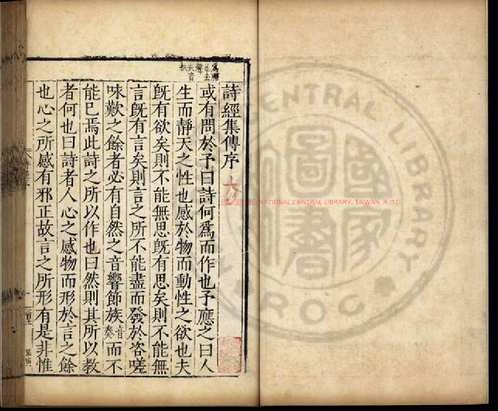 詩經集傳序
或有問於予曰詩何爲而作也予應之曰人
生而靜天之性也感於物而動性之欲也夫
旣有欲矣則不能無思旣有思矣則不能無
言旣有言矣則言之所不能盡而發於咨嗟
咏歎之餘者必有自然之音響節族音奏而不
能已焉此詩之所以作也曰然則其所以教
者何也曰詩者人心之感物而形於言之餘
也心之所感有邪正故言之所形有是非惟
CENTRAL LIBRARY
NATIONAL CENTRAL LIBRARY, TAIWAN
R.O.C
圖
書